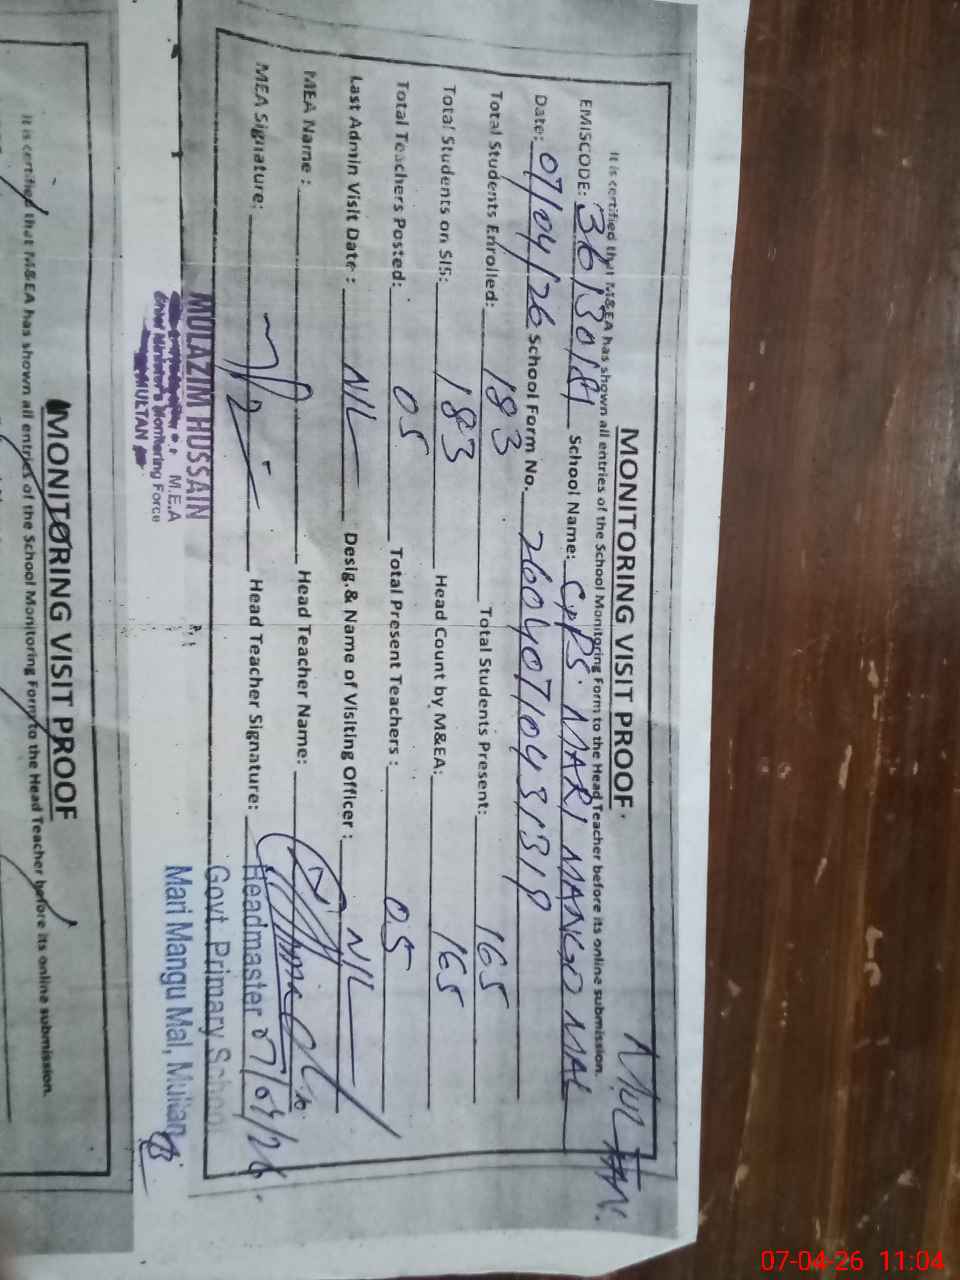 MULTAN.
MONITORING VISIT PROOF.
It is certified that M&EA has shown all entries of the School Monitoring Form to the Head Teacher before its online submission.
EMISCODE: 36130181 School Name: GPS. MARI MANGO MAL
Date: 07/04/26 School Form No. 26040704313
Total Students Enrolled: 183 Total Students Present: 165
Total Students on SIS: 183 Head Count by M&EA: 165
Total Teachers Posted: 05 Total Present Teachers : 05
Last Admin Visit Date : NIL Desig.& Name of Visiting Officer : NIL
MEA Name : Head Teacher Name:
MEA Signature: Head Teacher Signature:
Headmaster 07/04/26.
Govt. Primary School
Mari Mangu Mal, Multan
MULAZIM HUSSAIN
M.E.A
Monitoring Force
MULTAN
MONITORING VISIT PROOF
It is certified that M&EA has shown all entries of the School Monitoring Form to the Head Teacher before its online submission.
07-04-26 11:04